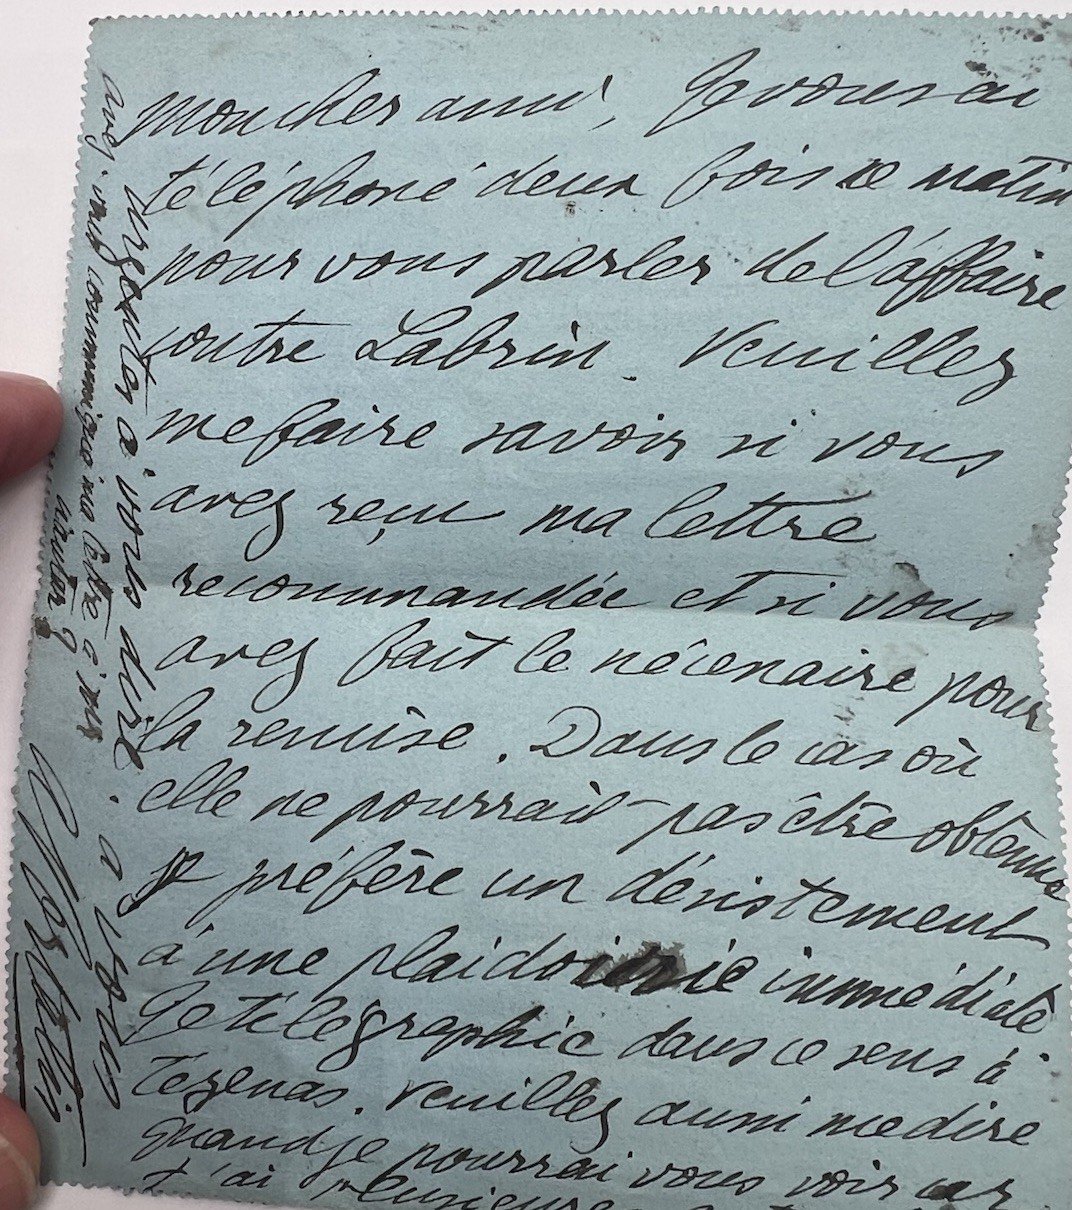 Mon cher ami, Je vous ai
téléphoné deux fois ce matin
pour vous parler de l'affaire
contre Labrin. Veuillez
me faire savoir si vous
avez reçu ma lettre
recommandée et si vous
avez fait le nécessaire pour
la remise. Dans le cas où
elle ne pourrait pas être obtenue
je préfère un désistement
à une plaidoirie immédiate
Je télégraphie dans ce sens à
Tezenas. Veuillez aussi me dire
quand je pourrai vous voir car
j'ai plusieurs
à vous dire. à vous
avez-vous communiqué ma lettre à